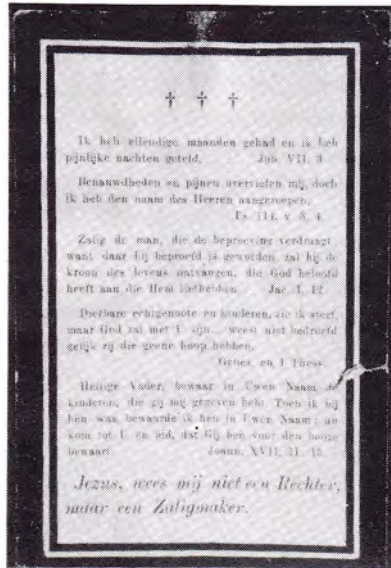 † † †
Ik heb ellendige maanden gehad en ik heb
pijnlijke nachten geteld. Job. VII, 3
Benauwdheden en pijnen overvielen mij, doch
ik heb den naam des Heeren aangeroepen.
Ps. 114, v. 3, 4.
Zalig de man, die de beproeving verdraagt
want daar hij beproefd is geworden, zal hij de
kroon des levens ontvangen, die God beloofd
heeft aan die Hem liefhebben. Jac. I, 12
Dierbare echtgenoote en kinderen, zie ik sterf,
maar God zal met U zijn... weest niet bedroefd
gelijk zij die geene hoop hebben.
Genes. en I Thess
Heilige Vader, bewaar in Uwen Naam de
kinderen, die gij mij gegeven hebt. Toen ik bij
hen was, bewaarde ik hen in Uwen Naam; nu
kom tot U en bid, dat Gij hen voor den booze
bewaart. Joann. XVII, 11-15
Jezus, wees mij niet een Rechter,
maar een Zaligmaker.